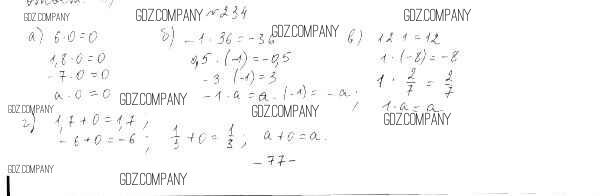 GDZ.COMPANY
GDZ.COMPANY № 234 GDZ.COMPANY
GDZ.COMPANY
а) 6·0=0
1,8·0=0
-7·0=0
a·0=0
б) -1·36=-36
0,5·(-1)=-0,5
-3·(-1)=3
-1·a=a·(-1)=-a;
в) 12·1=12
1·(-8)=-8
1·2/7=2/7
1·a=a.
GDZ.COMPANY
GDZ.COMPANY
GDZ.COMPANY
GDZ.COMPANY
г) 1,7+0=1,7;
-6+0=-6; 1/3+0=1/3; a+0=a.
-77-
GDZ.COMPANY
GDZ.COMPANY